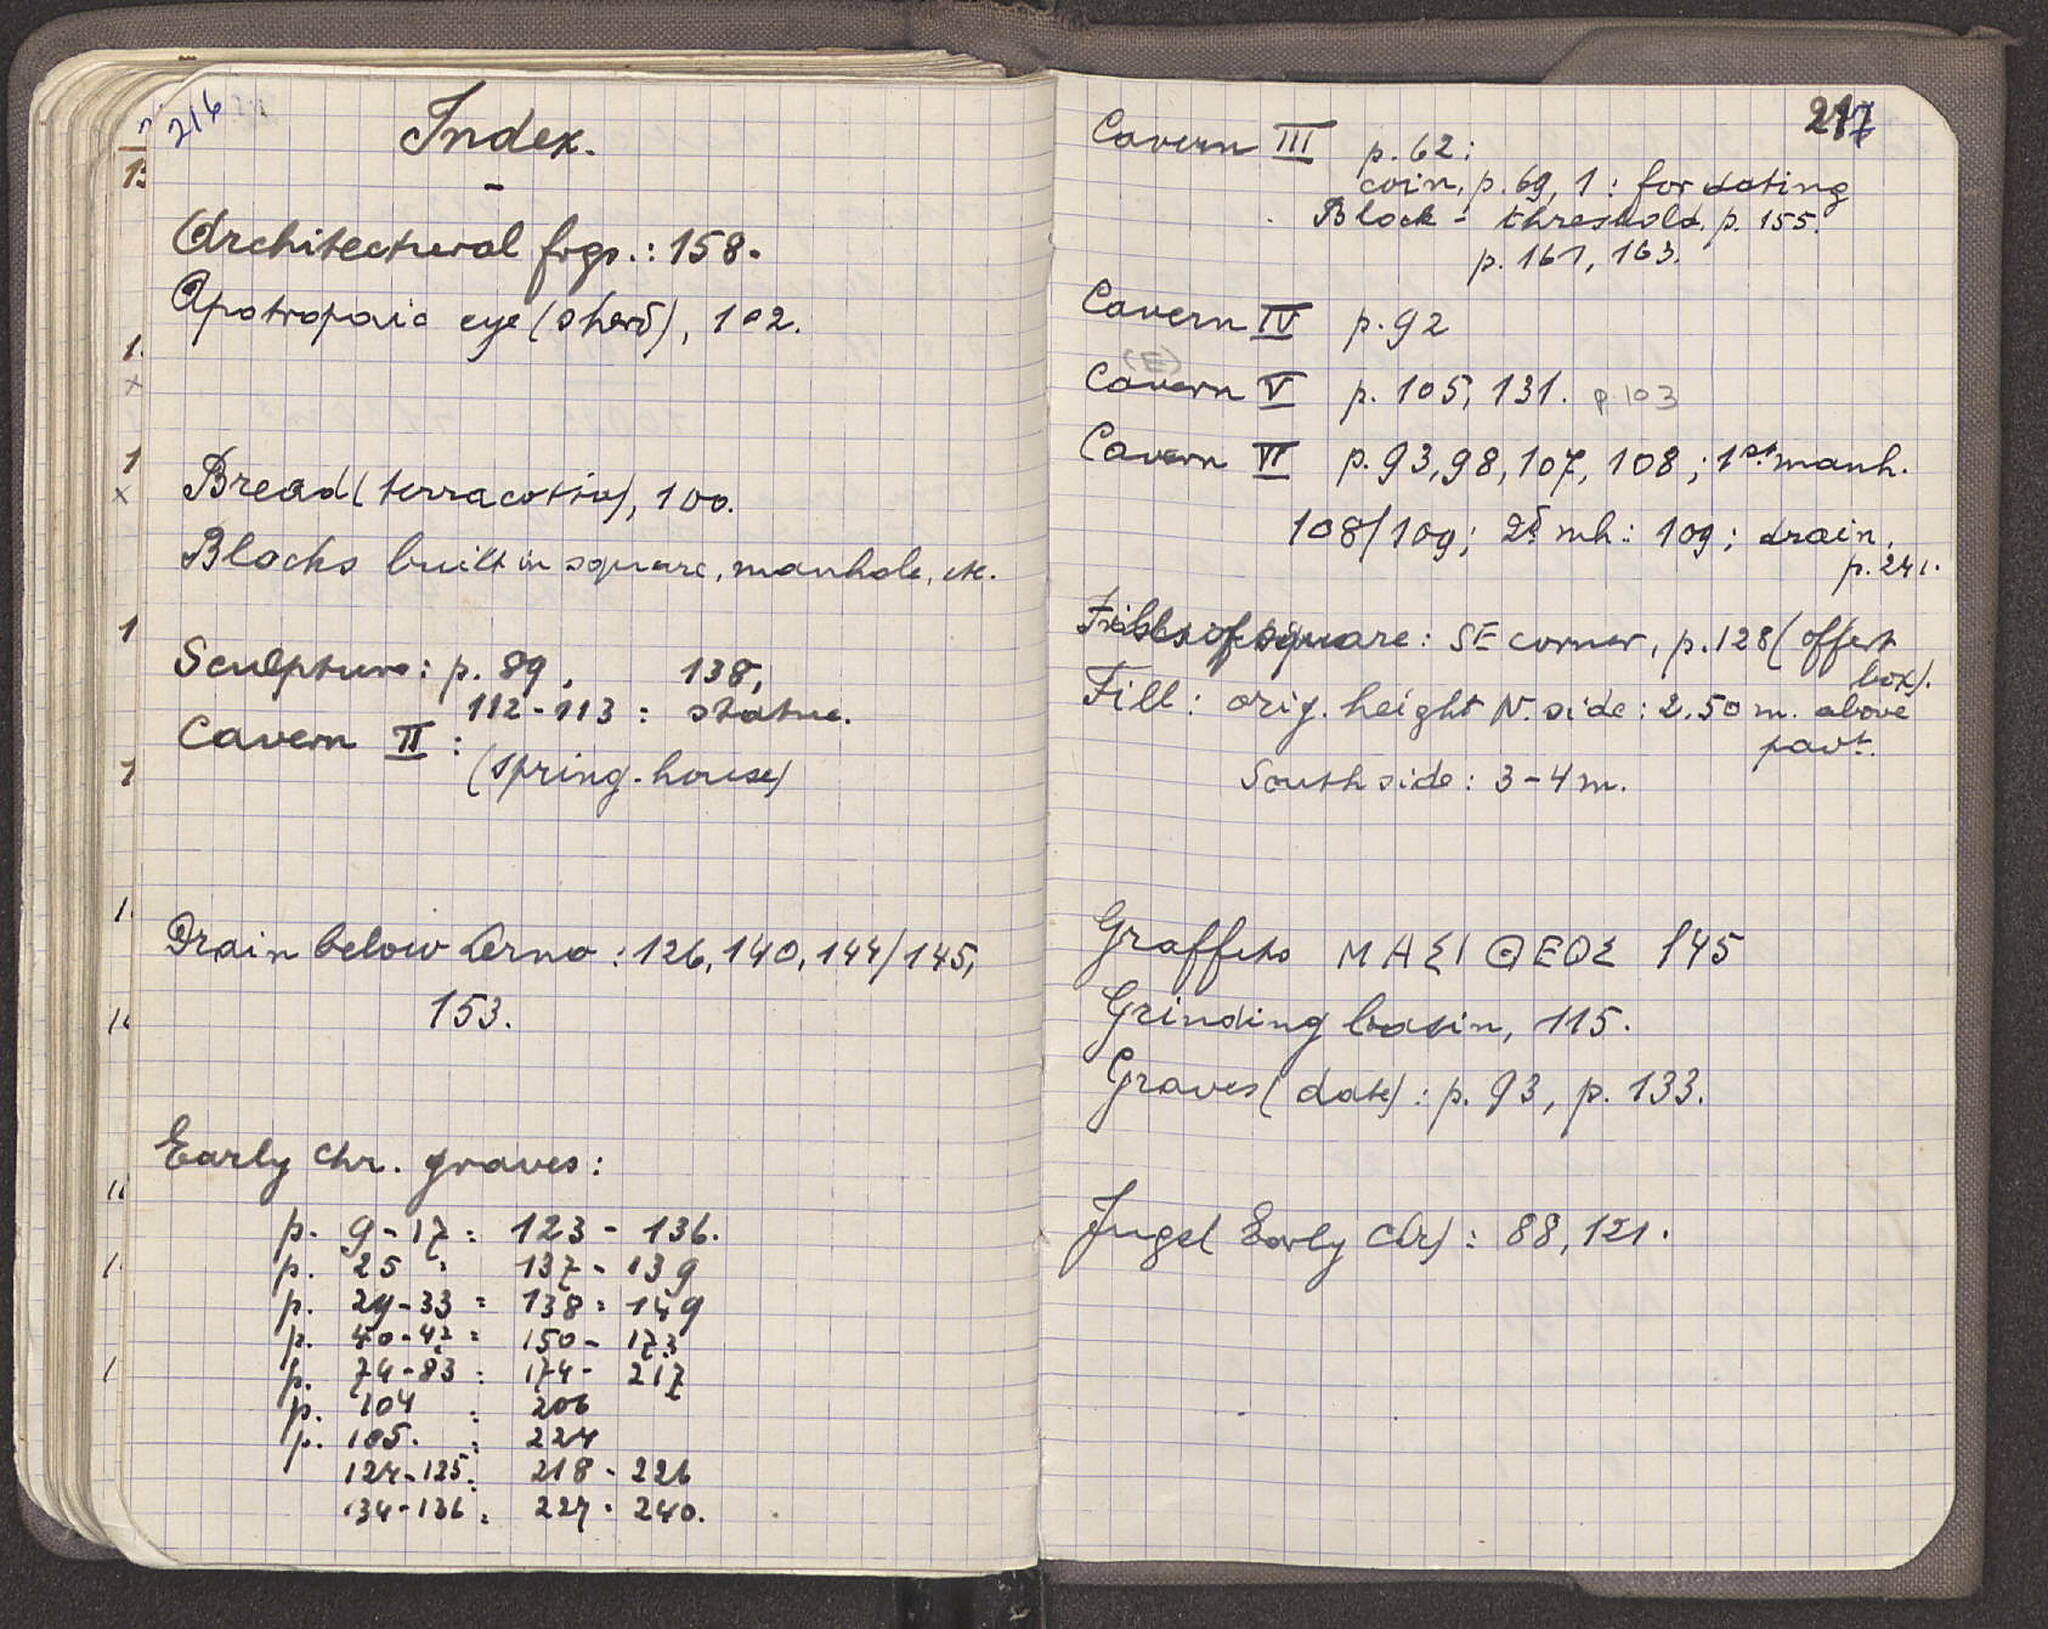 216
Index.
-
Architectural frgs.: 158.
Apotropaic eye (sherd), 102.
Bread (terracotta), 100.
Blocks built in square, manhole, etc.
Sculpture: p. 89, 138,
112-113 = statue.
Cavern II:
(spring-house)
Drain below Lerna: 126, 140, 144/145,
153.
Early Chr. graves:
p. 9-17 = 123 - 136.
p. 25 = 137 - 139
p. 29-33 = 138 = 149
p. 40-42 = 150 - 173
p. 74-83 = 174 - 217
p. 104 : 206
p. 105. : 224
124-125: 218 - 226
134-136 = 227 - 240.
217
Cavern III p. 62;
coin, p. 69, 1: for dating
Block - threshold, p. 155.
p. 161, 163.
Cavern IV p. 92
(E)
Cavern V p. 105, 131. p 103
Cavern VI p. 93, 98, 107, 108; 1st manh.
108/109; 2d mh: 109; drain,
p. 241.
of square: SE corner, p. 128 (offert
box).
Fill: orig. height N. side: 2.50 m. above
pavt.
South side: 3-4 m.
Graffito ΜΑΣΙ ΘΕΟΣ 145
Grinding basin, 115.
Graves (date): p. 93, p. 133.
Jugs (Early Chr): 88, 121.